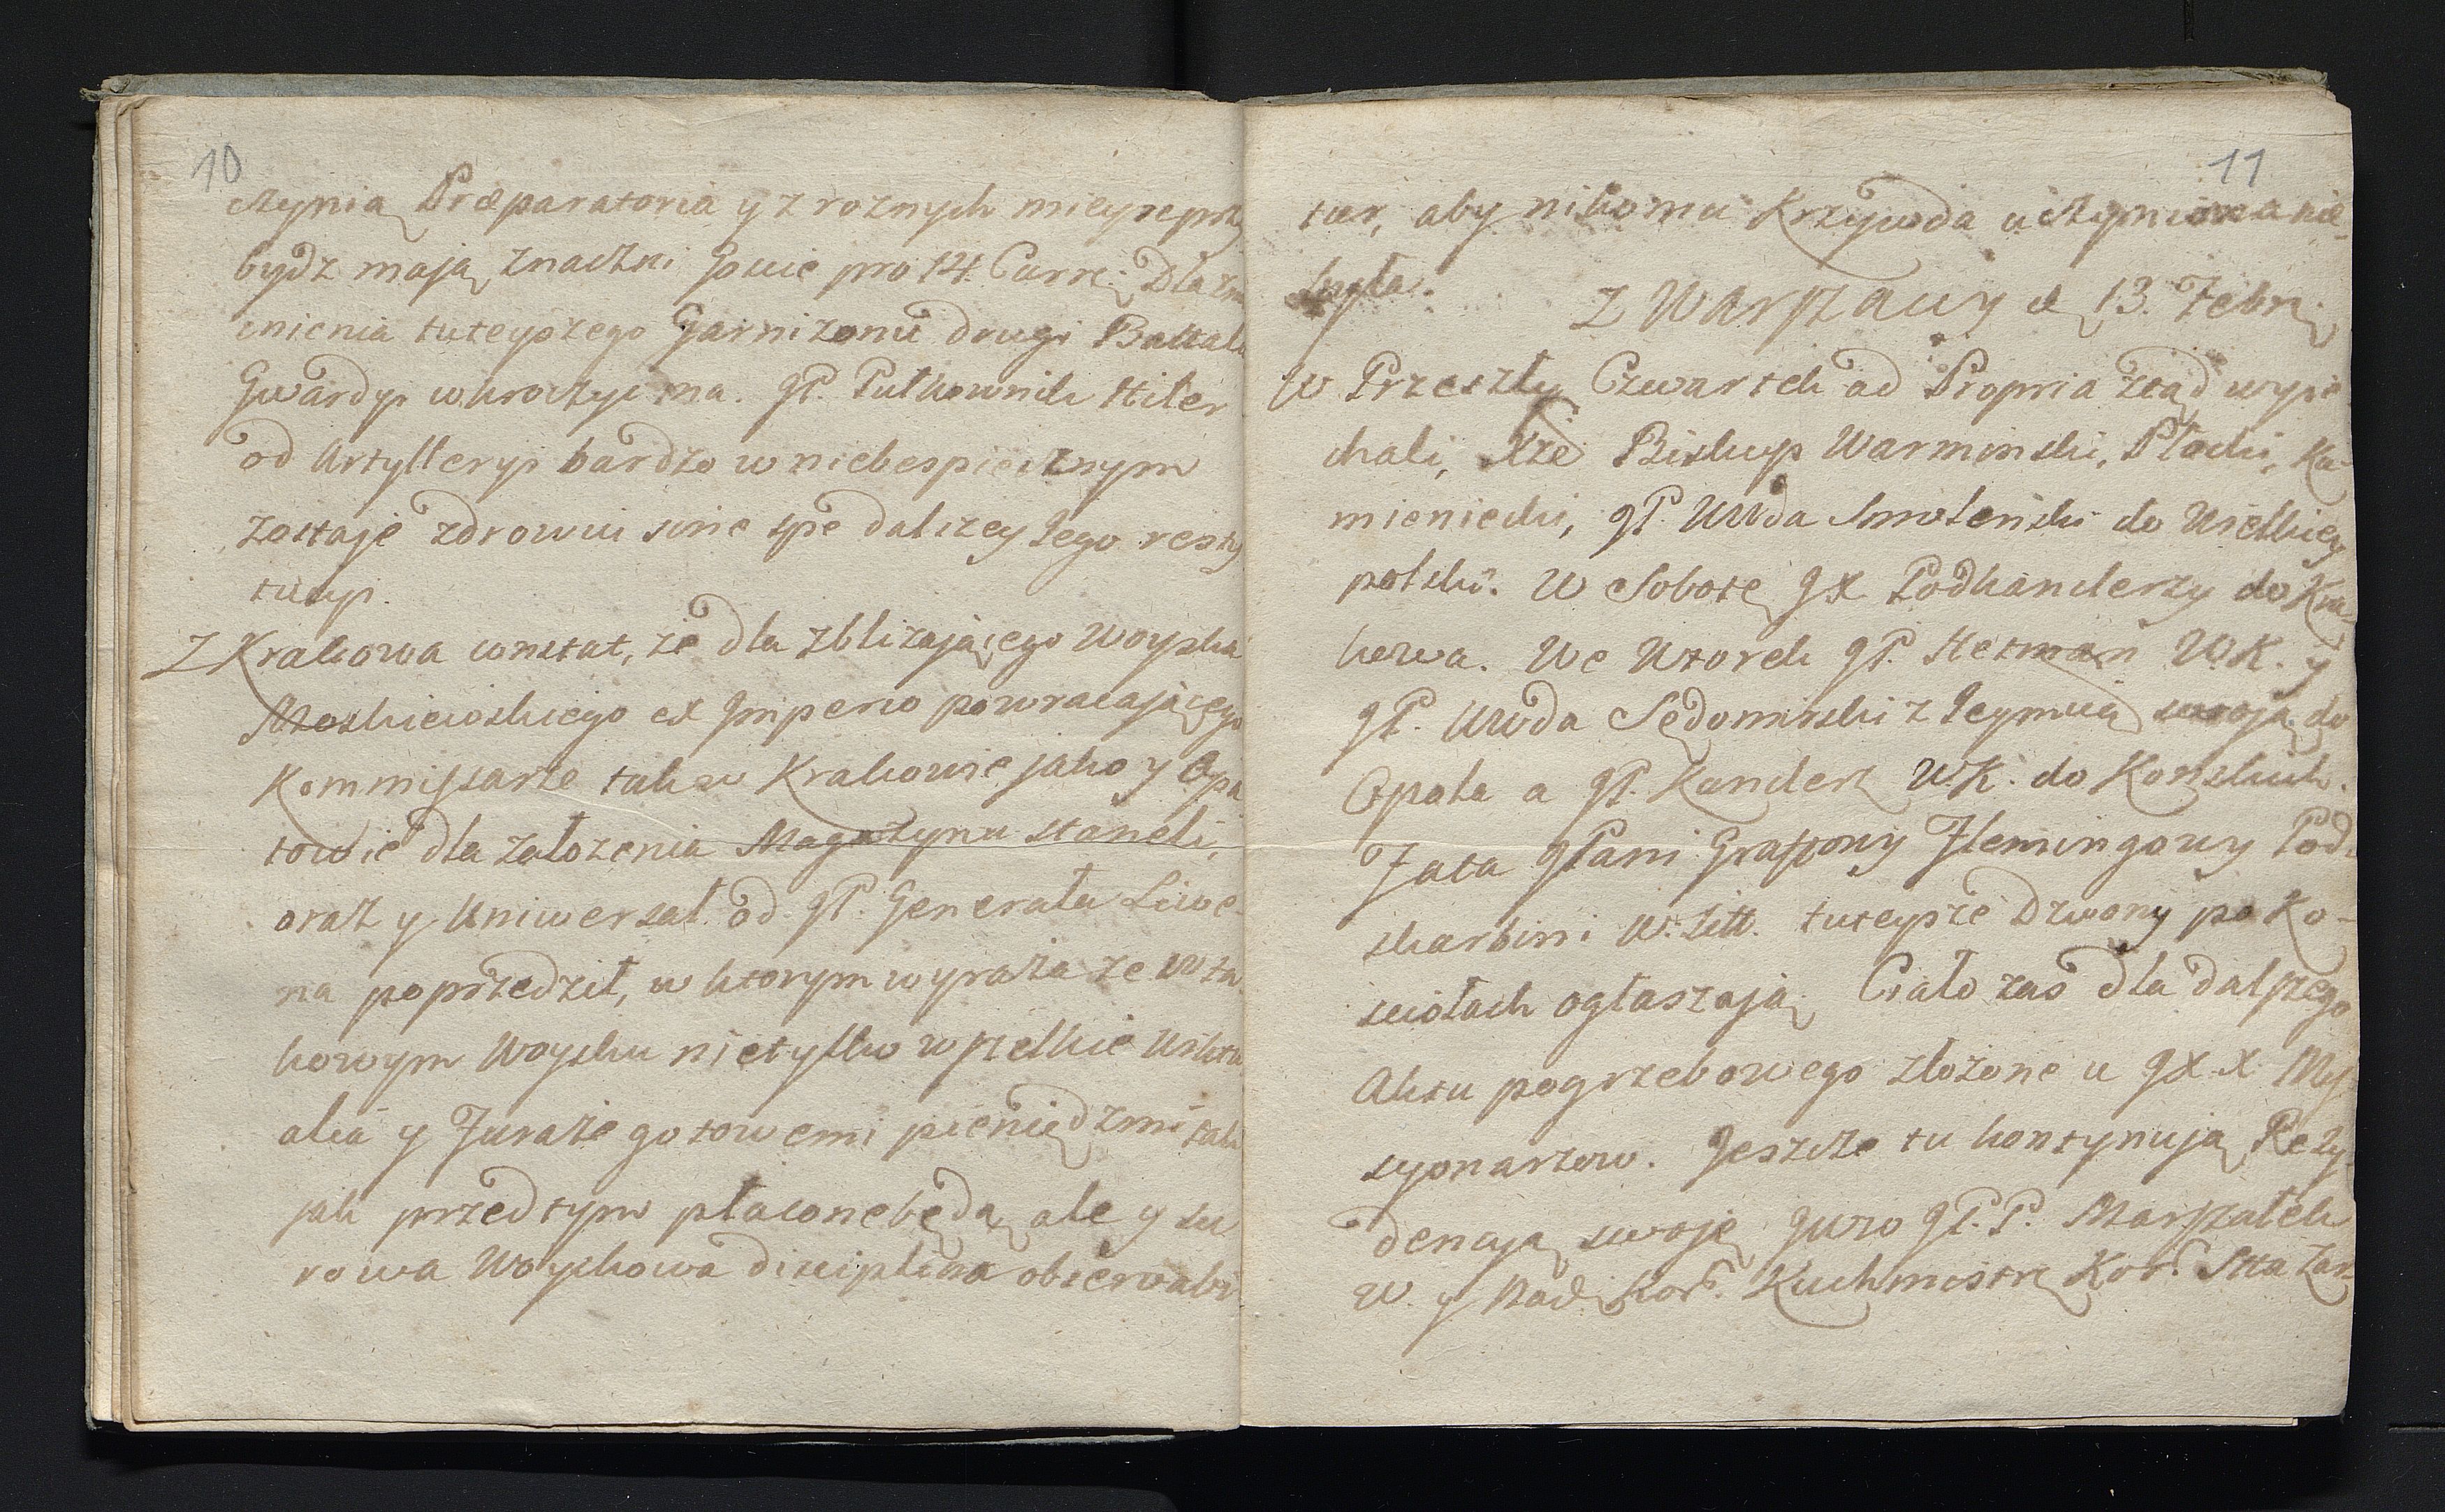 10
czynią Præparatoria y z roznych mieysc prz
bydz mają znaczni Gscie pro 14. Curr: Dla zm
mienia tuteyszego Garnizonu drugi Battali
Gwardyi wkroczyc ma. JP. Pułkownik Hiler
od Artylleryi bardzo w niebespiecznym
zostaje zdrowiu sine spe dalszey Jego resty
tucyi.
Z Krakowa constat, że dla zbliżającego Woyska
Moskiewskiego ex Imperio powracającego
Kommissarze tak w Krakowie jako y Opa
towie dla założenia Magazynu staneli,
oraz y Uniwersał od JP. Generała Liwe-
na poprzedził, w ktorym wyraża ze w ta
kowym Woysku nietylko wszelkie Wiktu
alia y Furaże gotowemi pieniędzmi tak
jak przedtym płacone będą, ale y su
rowa Woyskowa disciplina obserwabi
11
tur, aby nikomu Krzywda uczyniona nie
była.
Z Warszawy d. 13. Febr:
W Przeszły Czwartek ad Propria ztąd wyje
chali, Xże Biskup Warminski, Płocki, Ka-
mieniecki, JP. Wwda Smolenski do Wielkiey
polski. W Sobotę JX Podkanclerzy do Kra
kowa. We Wtorek JP. Hetman W.K. y
JP. Wwda Sędomirski z Jeymcią swoją do
Opola a JP. Kanclerz WK. do Konskich.
Fata JPani Graffowy Flemingowy Pod
skarbini W. Litt. tuteysze Dzwony po Ko-
sciołach ogłaszają. Ciało zas dla dalszego
Aktu pogrzebowego złożone u JX.X. My
syonarzow. Jeszcze tu kontynują Rezy
dencyą swoję JWW JP.P. Marszałek
W. y Nad. Kor. Kuchmistrz Kor. Stta